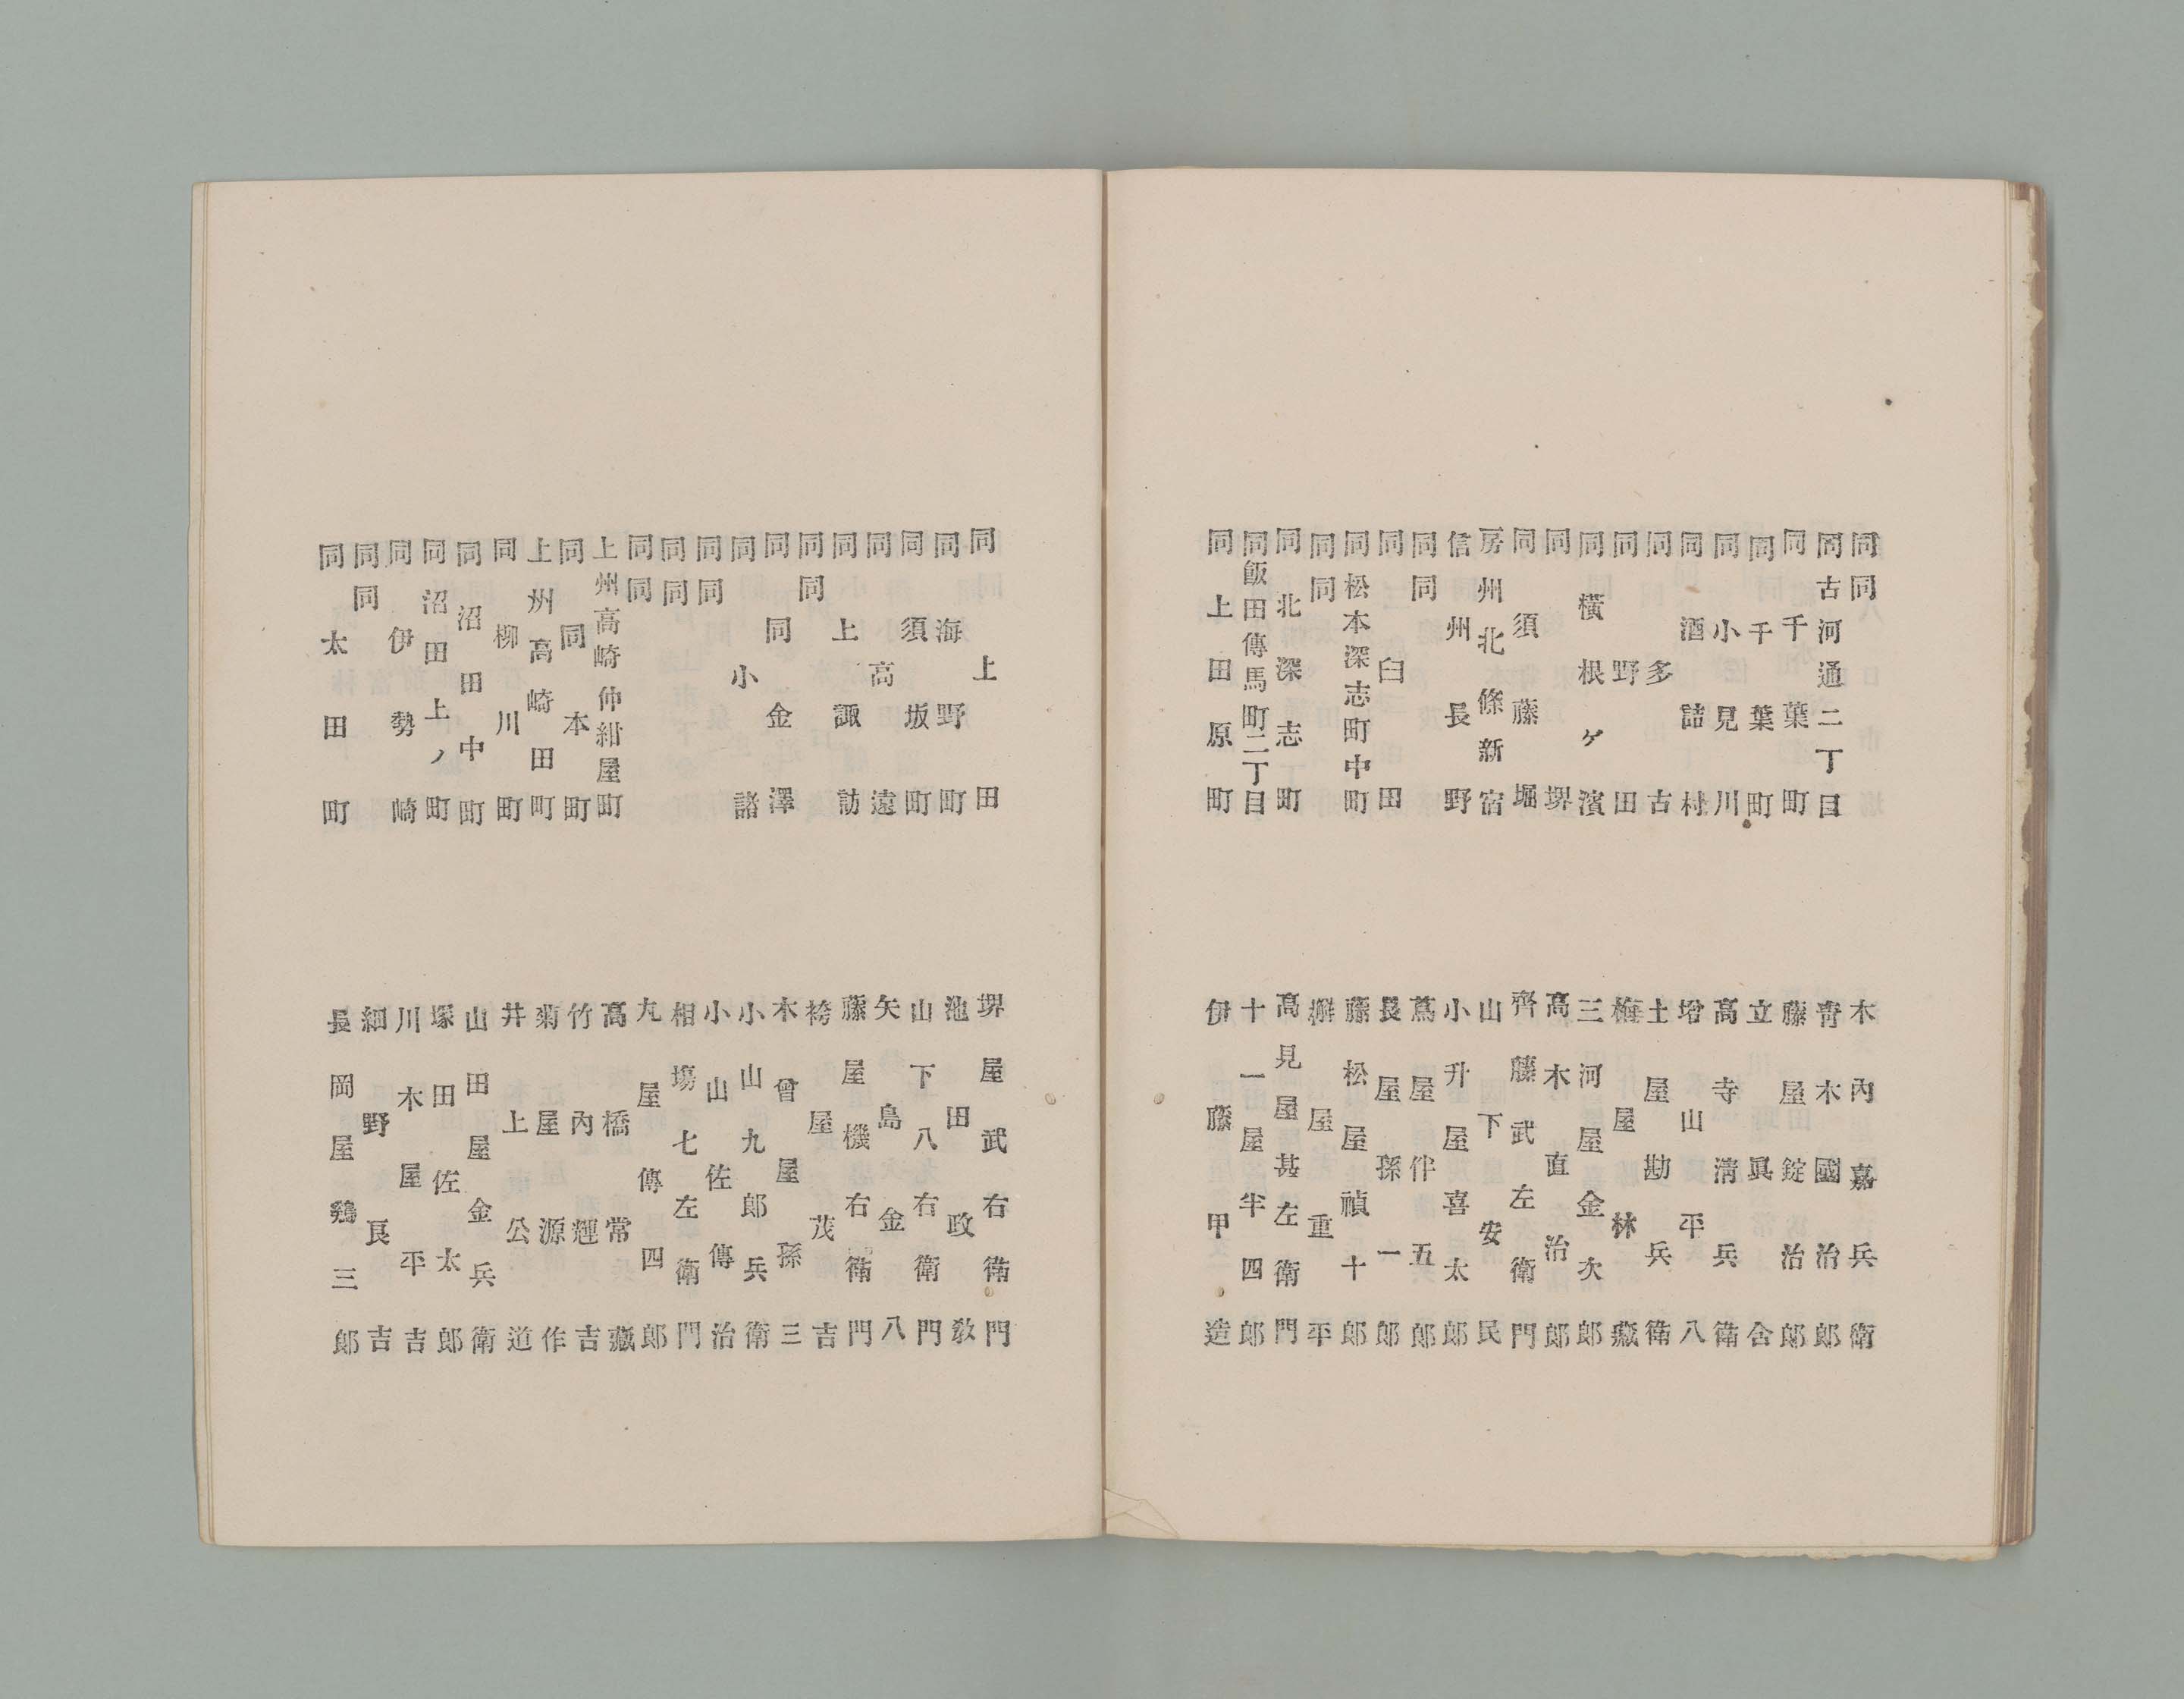 同同 木內嘉兵衛
同古河通二丁目 靑木國治郎
同千葉町 藤屋錠治郎
同千葉町 立眞舍
同小見川 高寺淸兵衛
同酒詰村 增山平八
同多古 土屋勘兵衛
同野田 梅屋林藏
同橫根ケ濱 三河屋金次郎
同堺 髙木直治郎
同須藤堀 齊藤武左衛門
房州北條新宿 山下安民
信州長野 小升屋喜太郎
同同 蔦屋伴五郎
同臼田 長屋孫一郎
同松本深志町中町 藤松屋禎十郎
同同 屋重平
同北深志町 髙見屋甚左衛門
同飯田傳馬町二丁目 十一屋半四郎
同上田原町 伊藤甲造
同上田 堺屋武右衛門
同海野町 池田政敎
同須坂町 山下八右衛門
同高遠 矢島金八
同上諏訪 藤屋機右衛門
同同 袴屋茂吉
同同金澤 木曾屋孫三
同小諸 小山九郎兵衛
同同 小山佐傳治
同同 相塲七左衛門
同同 丸屋傳四郎
上州高崎仲紺屋町 髙橋常藏
同同本町 竹內輝吉
上州高崎田町 菊屋源作
同柳川町 井上公道
同沼田中町 山田屋金兵衛
同沼田上ノ町 塚田佐太郎
同伊勢崎 川木屋平吉
同同 細野良吉
同太田町 長岡屋鷄三郎